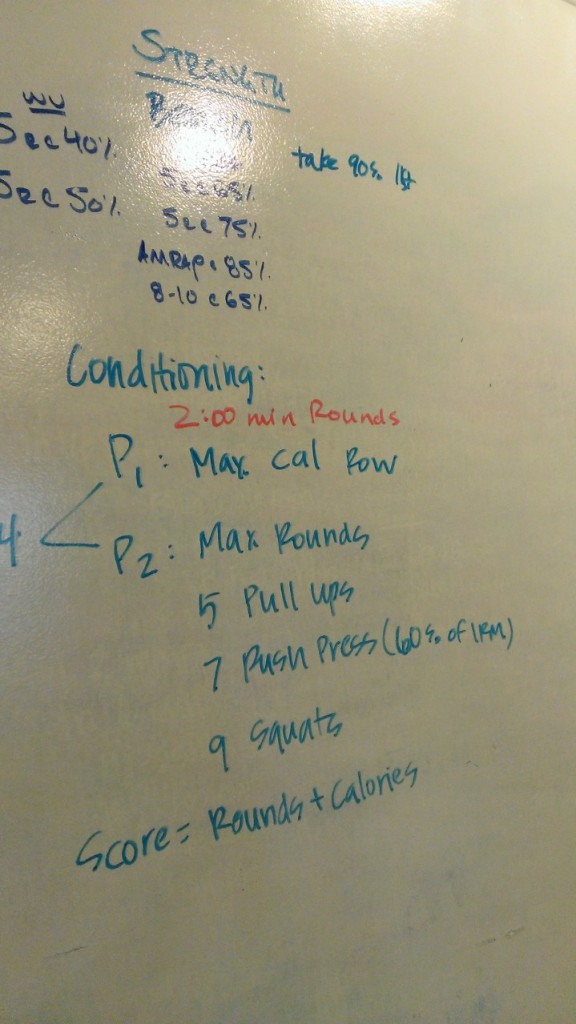 STRENGTH
BENCH
WU
5 @ 40%
5 @ 50%
take 90% 1st
5 @ 65%
5 @ 75%
AMRAP @ 85%
8-10 @ 65%
Conditioning:
2:00 min Rounds
4
P1: Max Cal Row
P2: Max Rounds
5 Pull ups
7 Push Press (60% of 1RM)
9 Squats
Score = Rounds + Calories